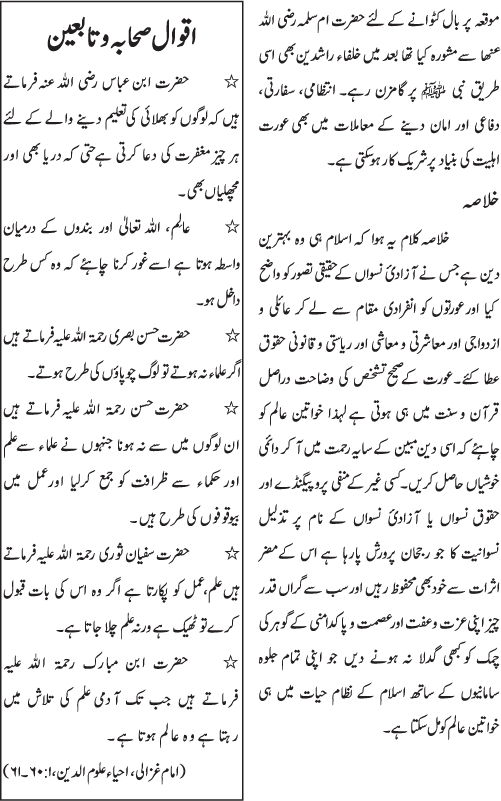 موقعہ پر بال کٹوانے کے لئے حضرت ام سلمہ رضی اللہ
عنھا سے مشورہ کیا تھا بعد میں خلفاء راشدین بھی اسی
طریق نبی ﷺ پر گامزن رہے۔ انتظامی، سفارتی،
دفاعی اور امان دینے کے معاملات میں بھی عورت
اہلیت کی بنیاد پر شریک کار ہوسکتی ہے۔
خلاصہ
خلاصہ کلام یہ ہوا کہ اسلام ہی وہ بہترین
دین ہے جس نے آزادیٔ نسواں کے حقیقی تصور کو واضح
کیا اور عورتوں کو انفرادی مقام سے لے کر عائلی و
ازدواجی اور معاشرتی و معاشی اور ریاستی و قانونی حقوق
عطا کئے۔ عورت کے صحیح تشخص کی وضاحت دراصل
قرآن و سنت میں ہی ہوتی ہے لہذا خواتین عالم کو
چاہئے کہ اسی دین مبین کے سایہ رحمت میں آ کر دائمی
خوشیاں حاصل کریں۔ کسی غیر کے منفی پروپیگنڈے اور
حقوق نسواں یا آزادیٔ نسواں کے نام پر تذلیل
نسوانیت کا جو رجحان پرورش پارہا ہے اس کے مضر
اثرات سے خود بھی محفوظ رہیں اور سب سے گراں قدر
چیز اپنی عزت و عفت اور عصمت و پاکدامنی کے گوہر کی
چمک کو کبھی گدلا نہ ہونے دیں جو اپنی تمام جلوہ
سامانیوں کے ساتھ اسلام کے نظام حیات میں ہی
خواتین عالم کو مل سکتا ہے۔
اقوال صحابہ و تابعین
☆ حضرت ابن عباس رضی اللہ عنہ فرماتے
ہیں کہ لوگوں کو بھلائی کی تعلیم دینے والے کے لئے
ہر چیز مغفرت کی دعا کرتی ہے حتی کہ دریا بھی اور
مچھلیاں بھی۔
☆ عالم، اللہ تعالیٰ اور بندوں کے درمیان
واسطہ ہوتا ہے اسے غور کرنا چاہئے کہ وہ کس طرح
داخل ہو۔
☆ حضرت حسن بصری رحمۃ اللہ علیہ فرماتے ہیں
اگر علماء نہ ہوتے تو لوگ چوپاؤں کی طرح ہوتے۔
☆ حضرت حسن رحمۃ اللہ علیہ فرماتے ہیں
ان لوگوں میں سے نہ ہونا جنہوں نے علماء سے علم
اور حکماء سے ظرافت کو جمع کرلیا اور عمل میں
بیوقوفوں کی طرح ہیں۔
☆ حضرت سفیان ثوری رحمۃ اللہ علیہ فرماتے
ہیں علم، عمل کو پکارتا ہے اگر وہ اس کی بات قبول
کرے تو ٹھیک ہے ورنہ علم چلا جاتا ہے۔
☆ حضرت ابن مبارک رحمۃ اللہ علیہ
فرماتے ہیں جب تک آدمی علم کی تلاش میں
رہتا ہے وہ عالم ہوتا ہے۔
(امام غزالی، احیاء علوم الدین، ۱: ۶۰۔۶۱)